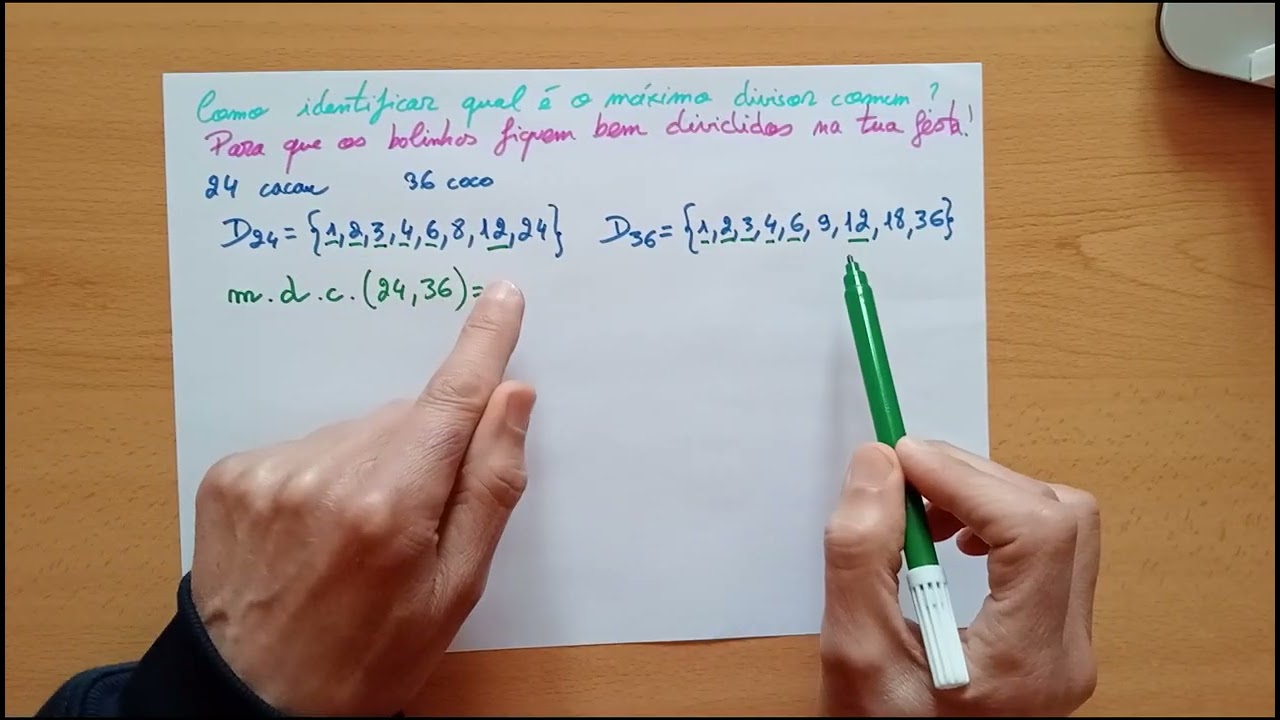 Como identificar qual é o máximo divisor comum?
Para que os bolinhos fiquem bem divididos na tua festa!
24 cacau 36 coco
D24 = {1, 2, 3, 4, 6, 8, 12, 24} D36 = {1, 2, 3, 4, 6, 9, 12, 18, 36}
m.d.c.(24,36)=